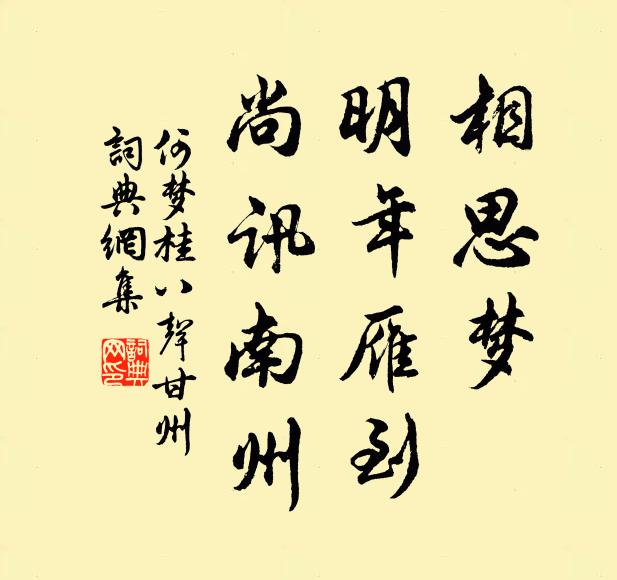 相思梦
明年雁到
尚讯南州
何梦桂八聲甘州
詞典網集
詞典网印